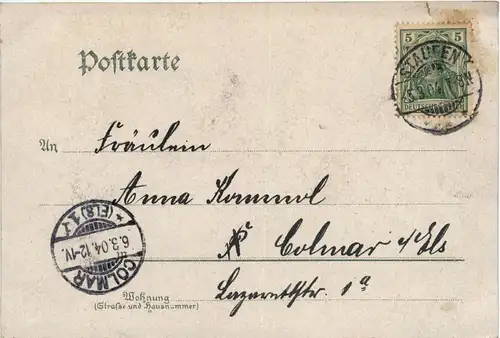 Postkarte
5 5
DEUTSCHES
STAUFEN
An Fräulein
Anna Kommol
Colmar i/Els
Lazarettstr. 1a
Wohnung
(Straße und Hausnummer)
COLMAR
6.3.04.12-1V.
* (ELS) 1